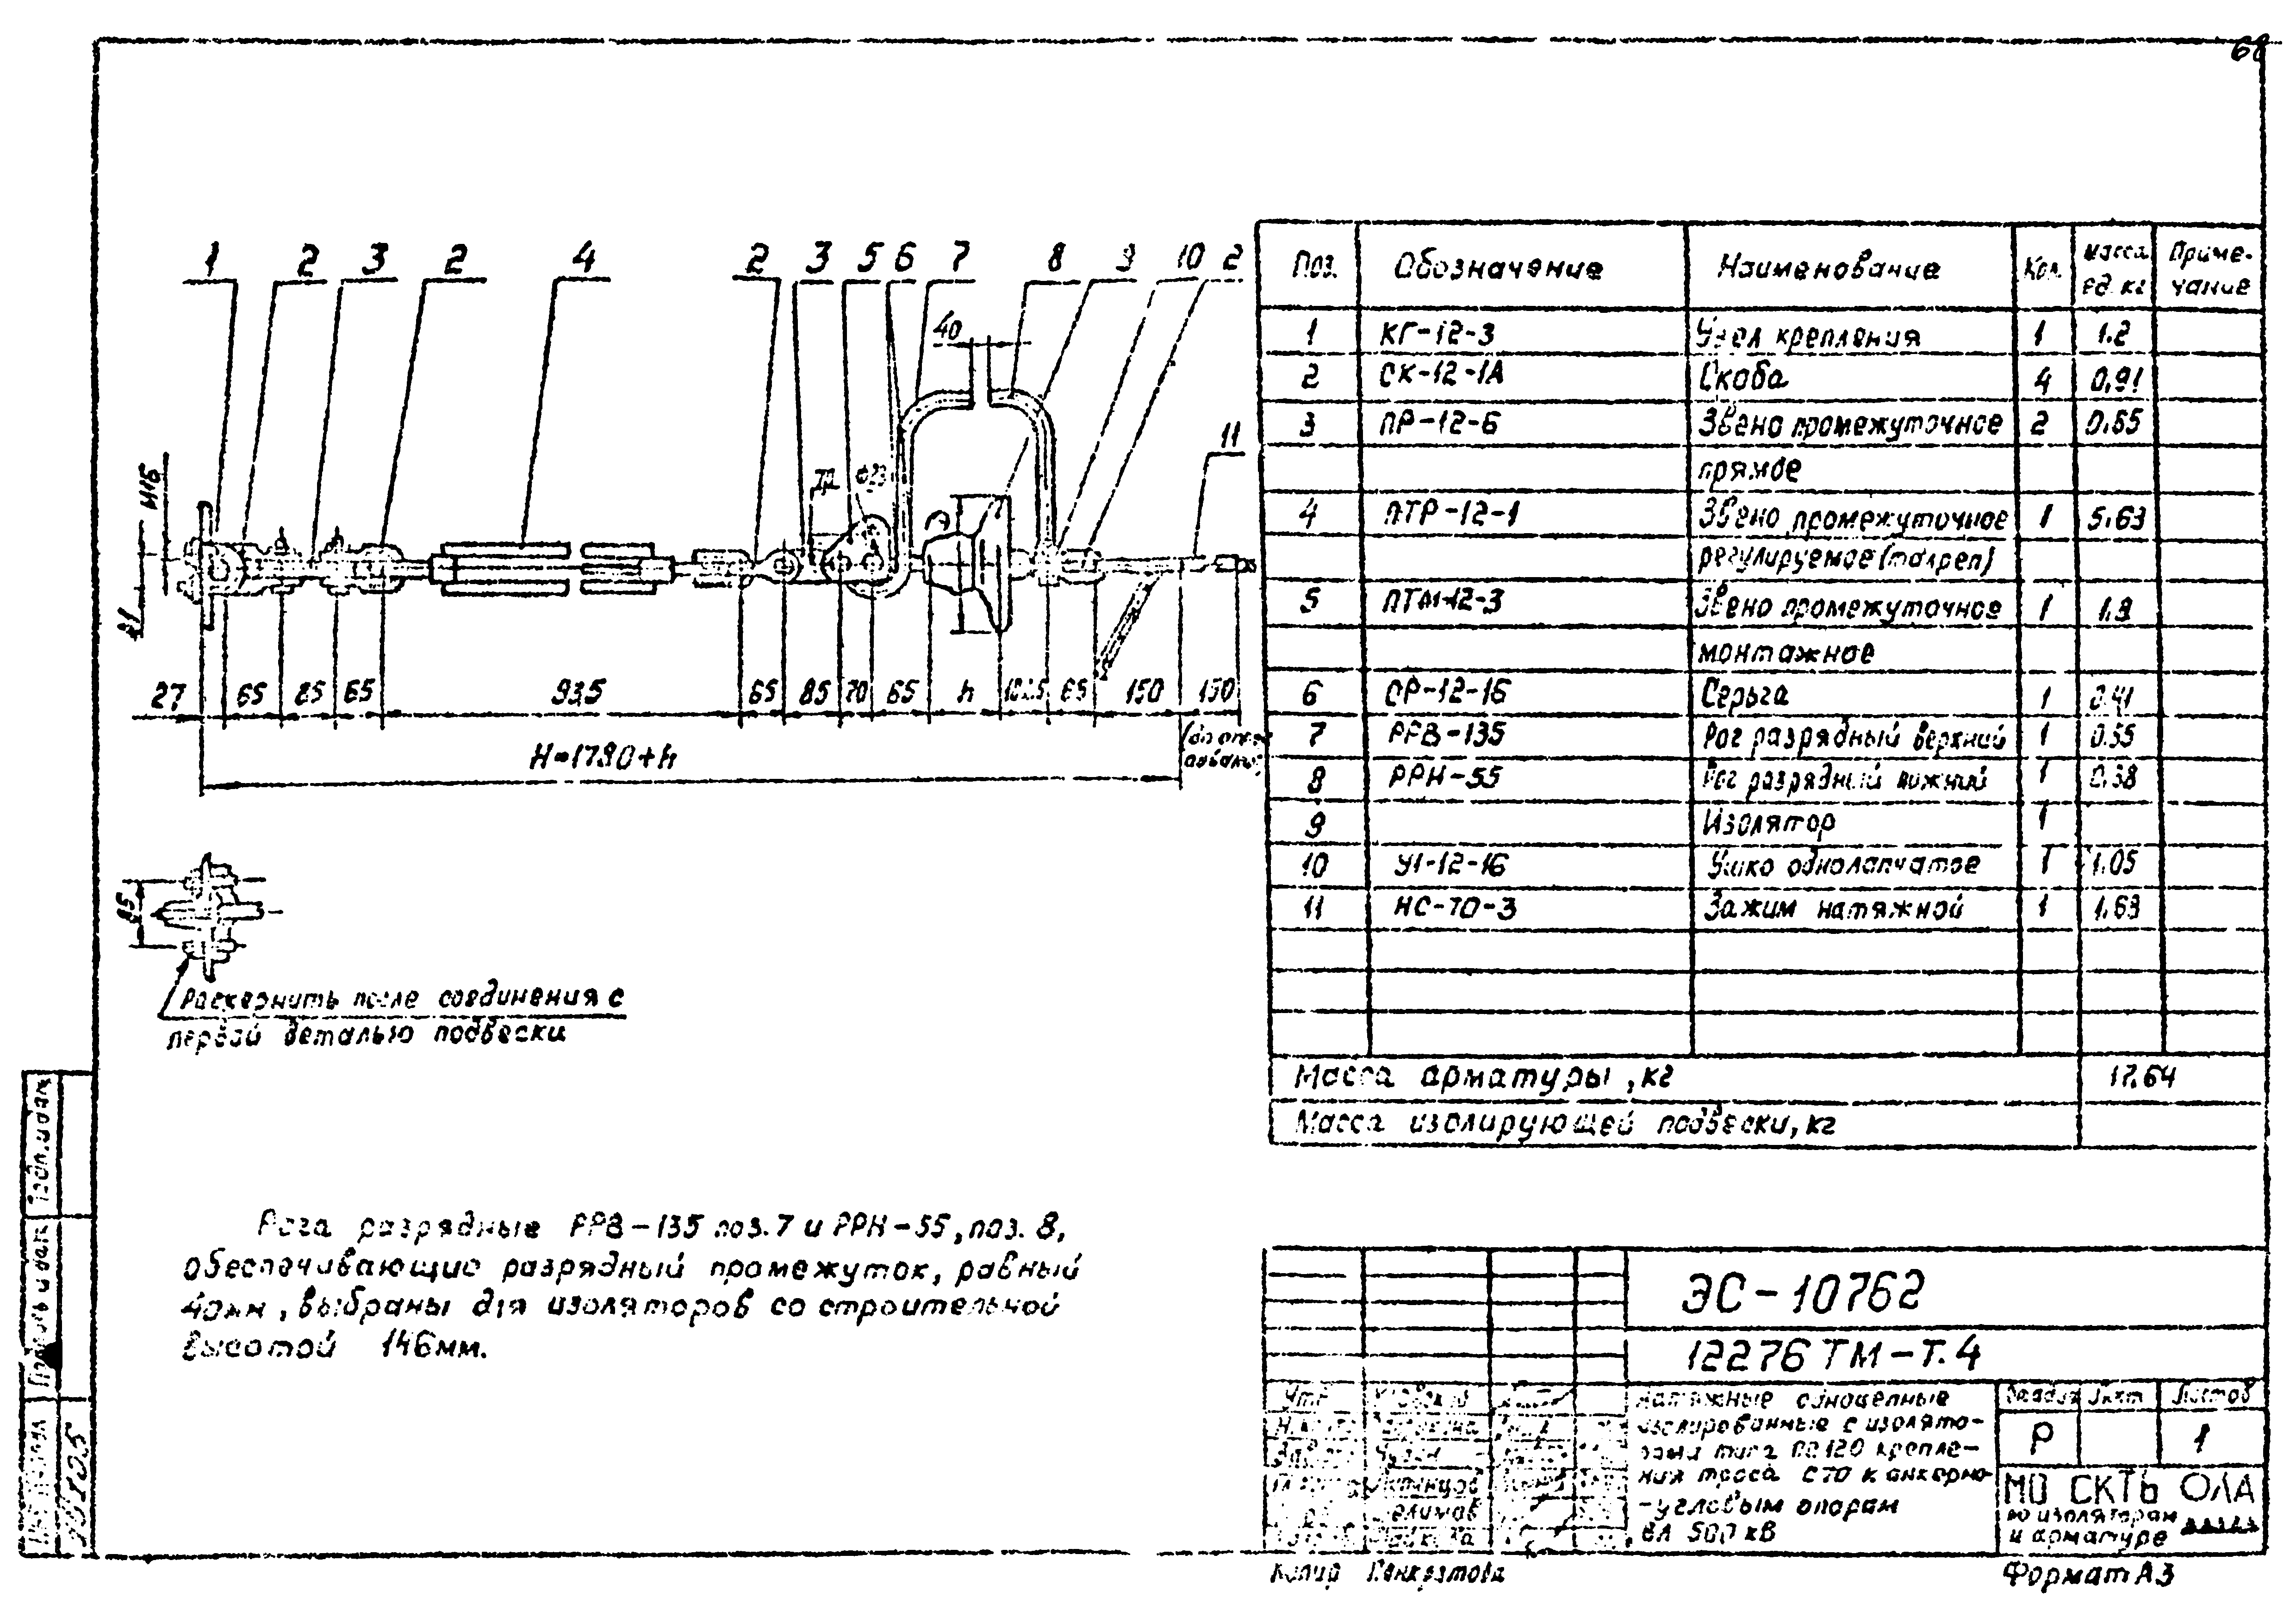 68
1 2 3 2 4 2 3 5 6 7 8 9 10 2
40
11
М16
φ23
27 65 85 65 935 65 85 70 65 h 102.5 65 150 150
H=1780+h
85
Раскернить после соединения с
первой деталью подвески
Рога разрядные РРВ-135 поз.7 и РРН-55, поз. 8,
обеспечивающие разрядный промежуток, равный
40мм, выбраны для изоляторов со строительной
высотой 146мм.
Поз. Обозначение Наименование Кол. Масса ед. кг Приме-чание
1 КГ-12-3 Узел крепления 1 1.2
2 СК-12-1А Скоба 4 0.91
3 ПР-12-6 Звено промежуточное 2 0.65
прямое
4 ПТР-12-1 Звено промежуточное 1 5.63
регулируемое (талреп)
5 ПТМ-12-3 Звено промежуточное 1 1.9
монтажное
6 СР-12-16 Серьга 1 0.41
7 РРВ-135 Рог разрядный верхний 1 0.55
8 РРН-55 Рог разрядный нижний 1 0.38
9 Изолятор 1
10 У1-12-16 Ушко однолапчатое 1 1.05
11 НС-70-3 Зажим натяжной 1 1.63
Масса арматуры, кг 17.64
Масса изолирующей подвески, кг
ЭС-10762
12276 ТМ-Т.4
Натяжные одноцепные
изолированные с изолято-
рами типа ПС120 крепле-
ния троса С70 к анкерно-
-угловым опорам
ВЛ 500 кВ
Листов
Р 1
МО СКТБ ОЛА
по изоляторам
и арматуре
Копир Панкратова
Формат А3